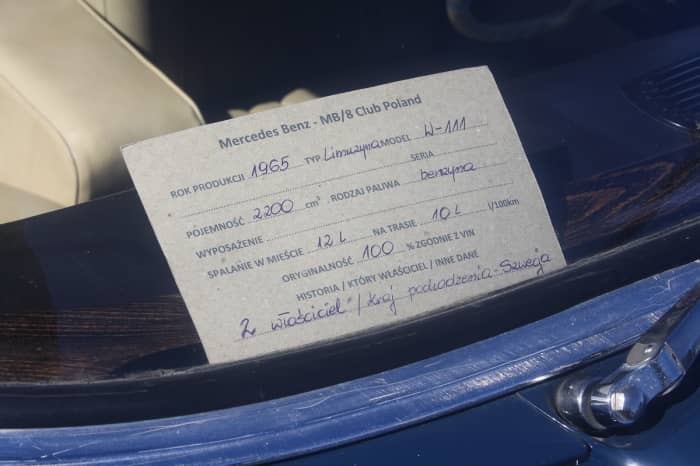 Mercedes Benz - MB/8 Club Poland
ROK PRODUKCJI 1965 TYP Limuzyna MODEL W-111
SERIA
POJEMNOŚĆ 2200 cm³ RODZAJ PALIWA benzyna
WYPOSAŻENIE
SPALANIE W MIEŚCIE 12 L NA TRASIE 10 L l/100km
ORYGINALNOŚĆ 100 % ZGODNIE Z VIN
HISTORIA / KTÓRY WŁAŚCICIEL / INNE DANE
2 właściciel / kraj pochodzenia - Szwecja